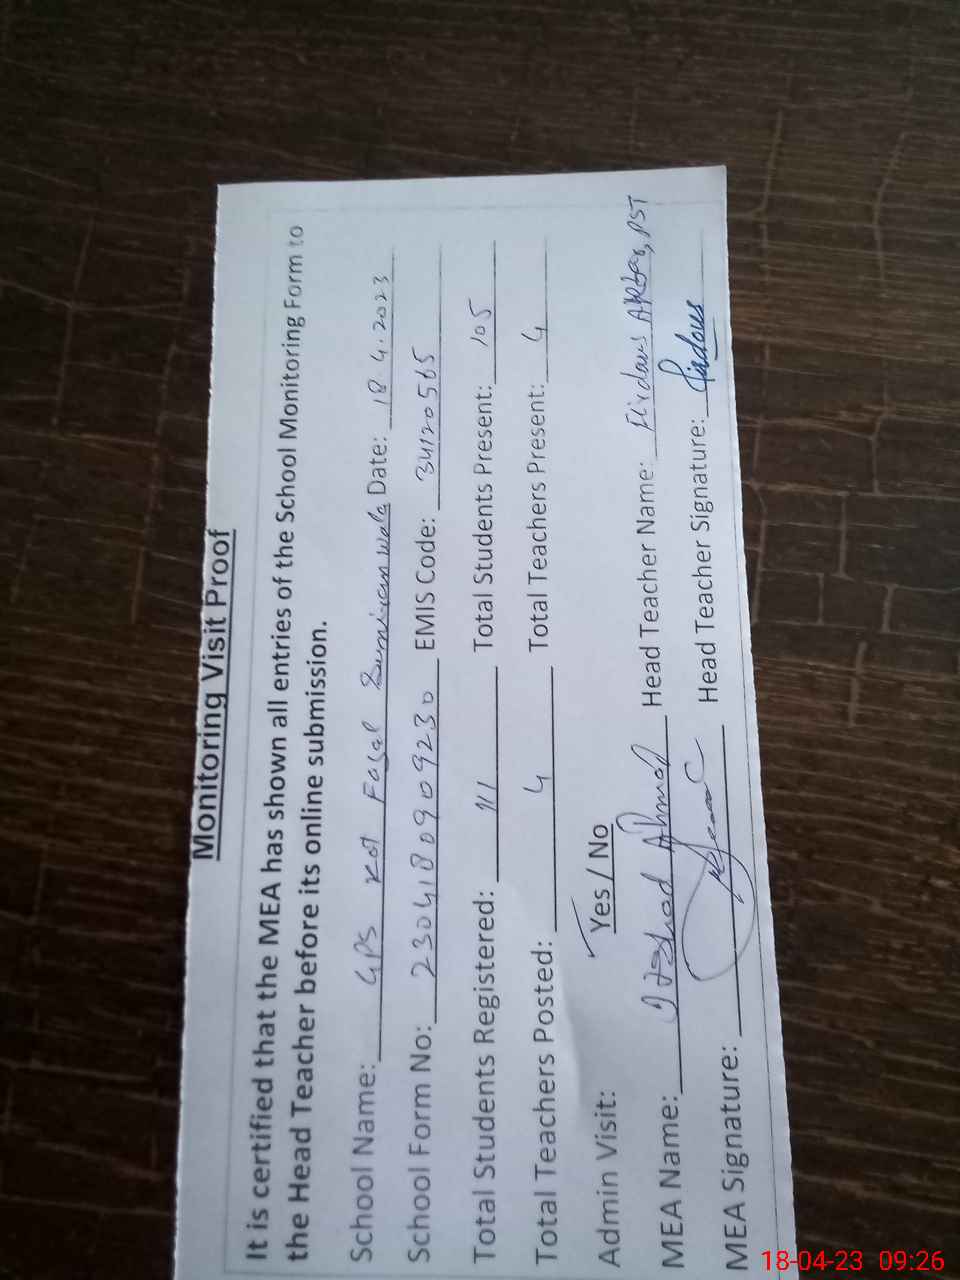 Monitoring Visit Proof
It is certified that the MEA has shown all entries of the School Monitoring Form to
the Head Teacher before its online submission.
School Name: GPS Kot Fazal Date: 18.4.2023
School Form No: 2304180909230 EMIS Code: 34120565
Total Students Registered: 111 Total Students Present: 105
Total Teachers Posted: 4 Total Teachers Present: 4
Admin Visit: Yes / No
MEA Name: Irshad Ahmad Head Teacher Name: Firdous Akbar, PST
MEA Signature: Head Teacher Signature: Firdous
18-04-23 09:26